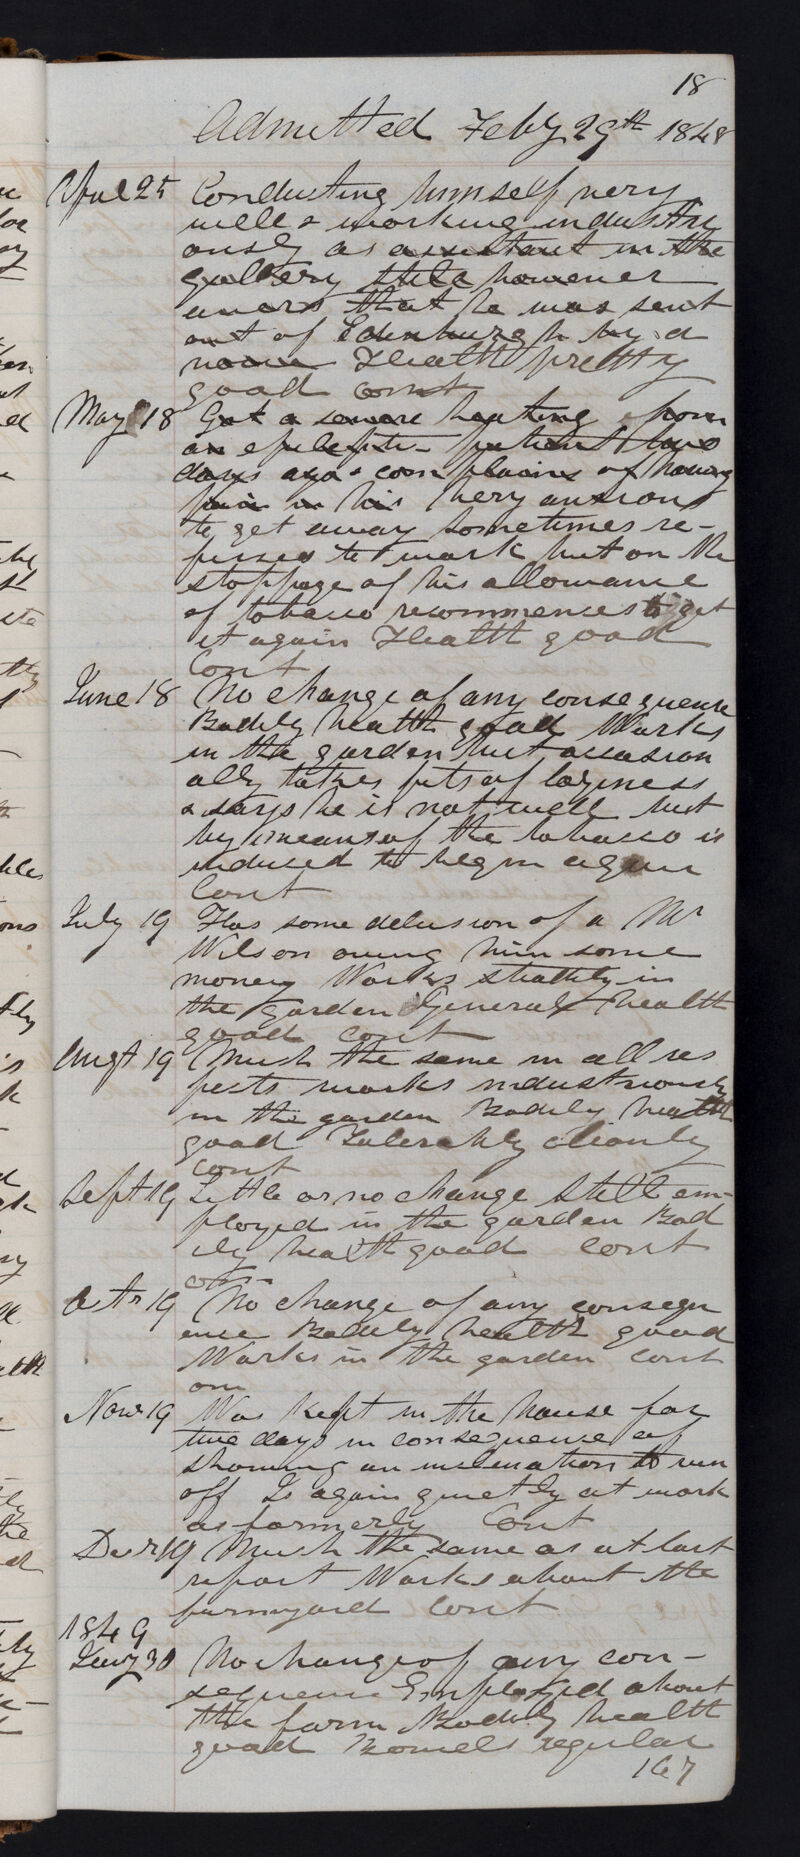 18
Admitted Feby 29th 1848
April 25 Conducting himself very
well & working industri
ously as assistant in the
gallery still however
avers that he was sent
out of Edinburgh by a
Health pretty
good cont
May 18 Got a severe beating from
an epileptic patient two
days ago & complains of having
pain in his Very anxious
to get away sometimes re-
fuses to work but on the
stoppage of his allowance
of tobacco recommences to get
it again Health good
Cont
June 18 No change of any consequence
Bodily health good Works
in the garden but occasion
ally takes fits of laziness
& says he is not well but
by means of the tobacco is
induced to begin again
Cont
July 19 Has some delusion of a Mr
Wilson owing him some
money Works steadily in
the garden General health
good cont
Augt 19 Much the same in all res
pects works industriously
in the garden Bodily health
good Tolerably cleanly
cont
Sept 19 Little or no change Still em-
ployed in the garden Bod
ily health good cont
Octr 19 No change of any consequ
ence Bodily health good
Works in the garden cont
Novr 19 Was kept in the house for
two days in consequence of
showing an inclination to run
off Is again quietly at work
as formerly Cont
Decr 19 Much the same as at last
report Works about the
farmyard Cont
1849
Jany 30 No change of any con-
sequence Employed about
the farm Bodily health
good Bowels regular
167